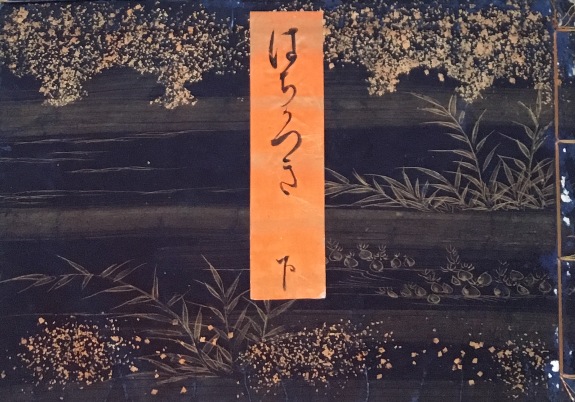 はちかつき 下